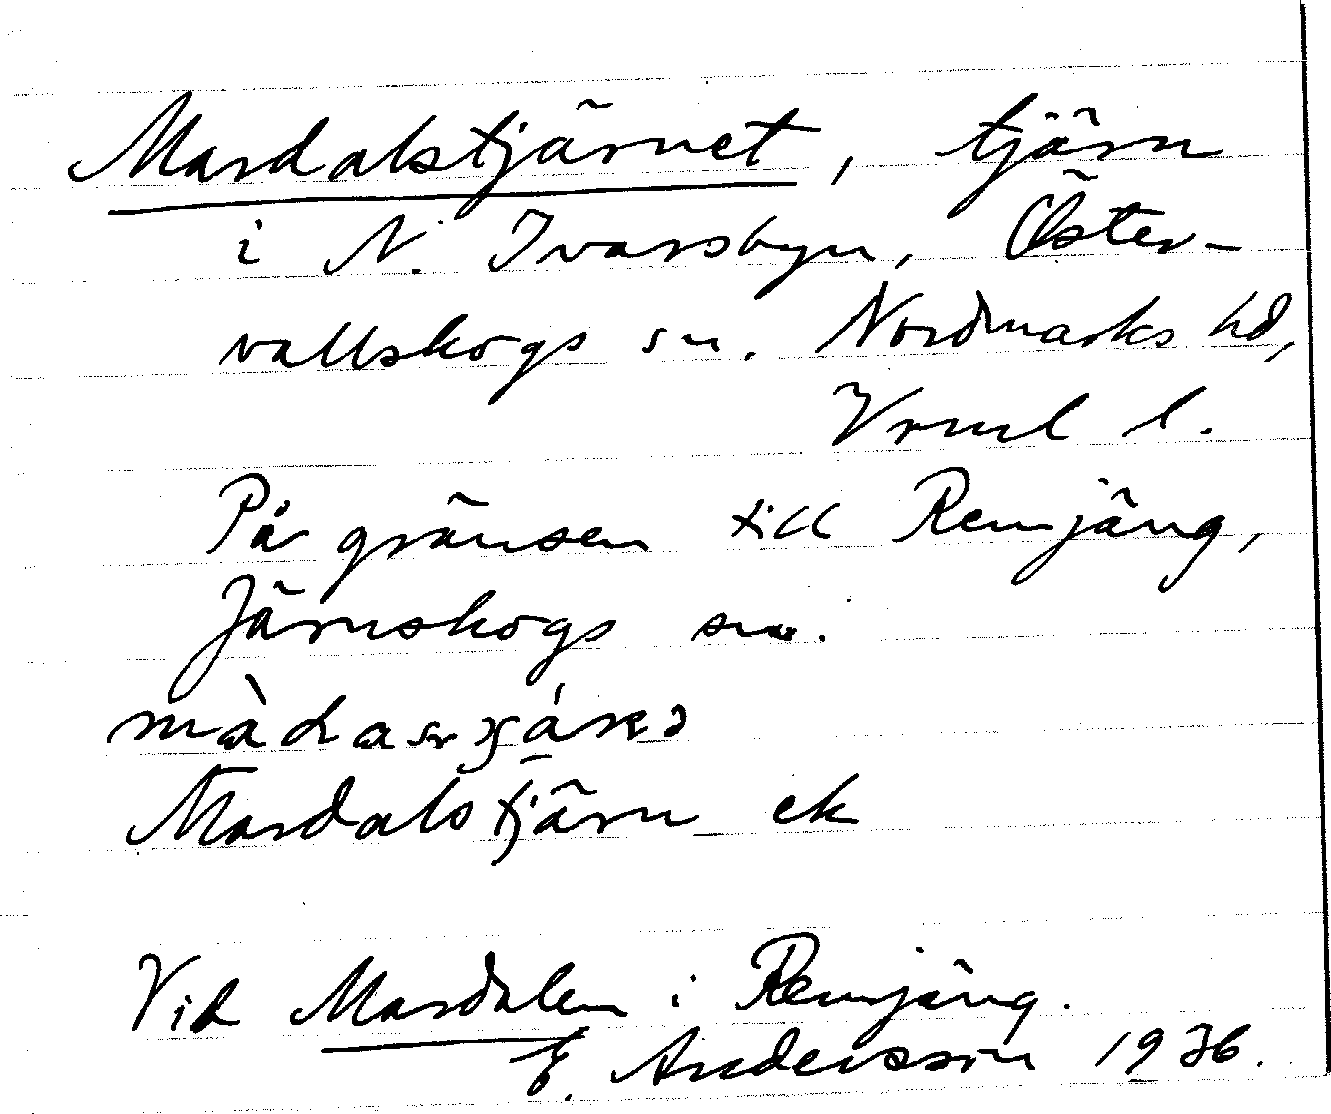 Mardalstjärnet, tjärn
i N. Ivarsbyn, Öster-
vallskogs sn. Nordmarks hd,
Vrml l.
På gränsen till Remjäng,
Järnskogs sn.
Mardalstjärn ek
Vid Mardalen i Remjäng.
E. Andersson 1936.